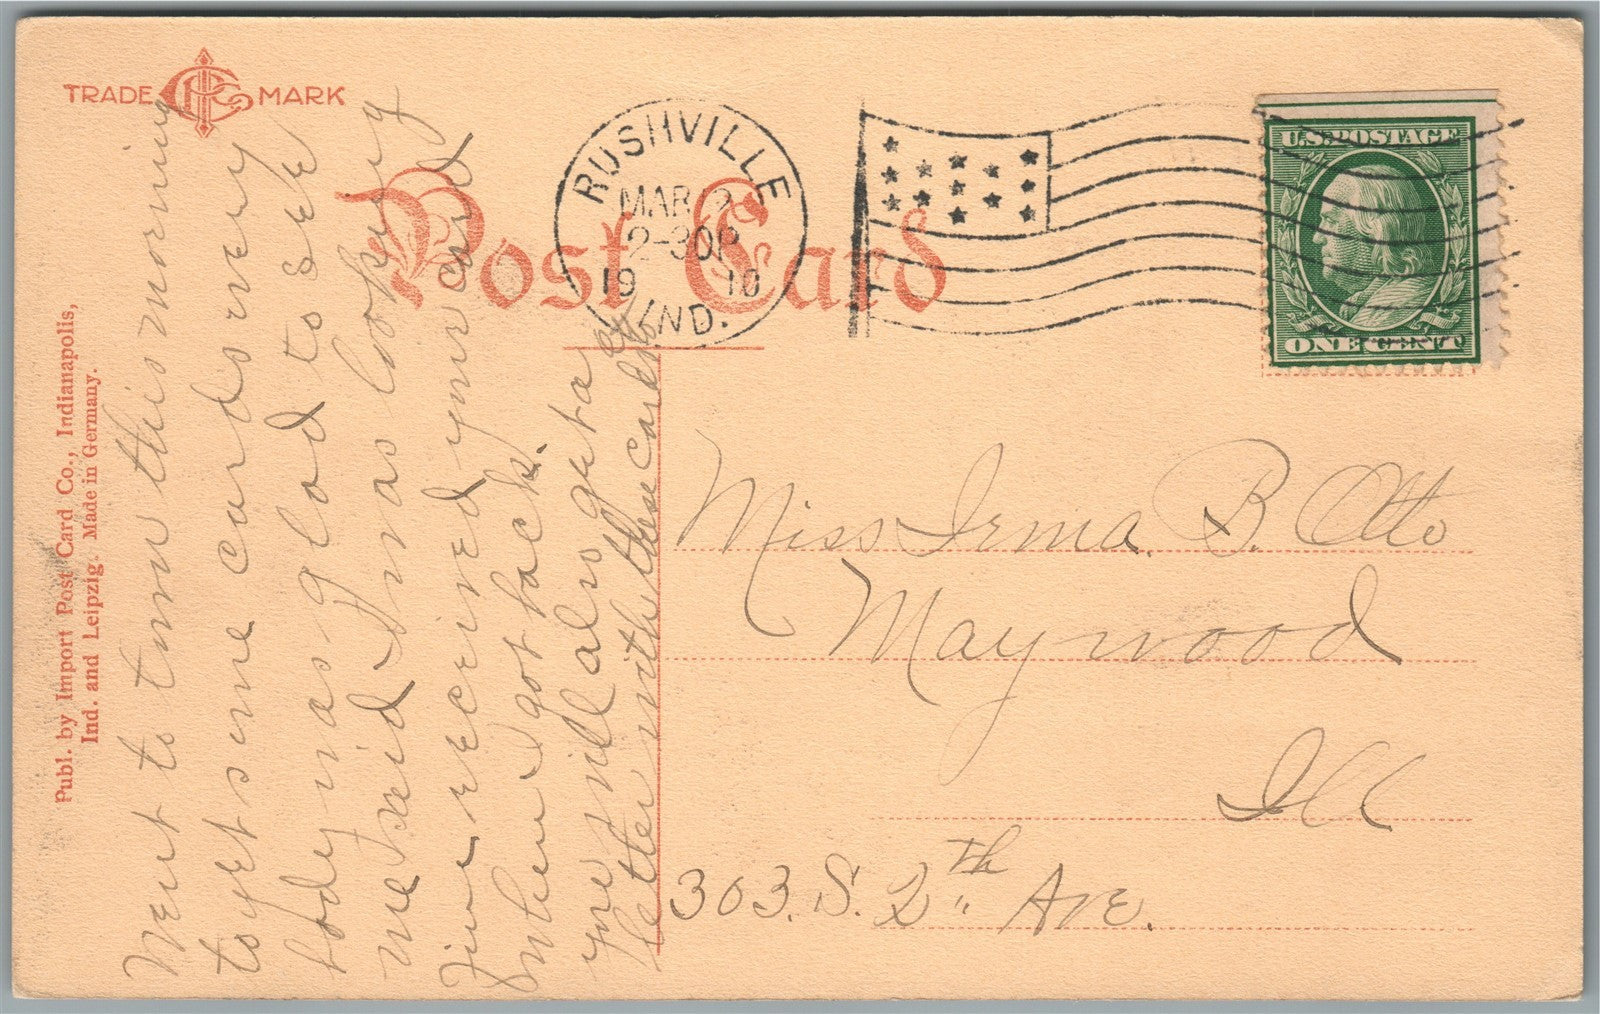 TRADE MARK
Post Card
RUSHVILLE
MAR 2
2-30P
19 10
IND.
U.S. POSTAGE
ONE CENT
Publ. by Import Post Card Co., Indianapolis,
Ind. and Leipzig. Made in Germany.
Went to town this morning
to get some cards every
body was glad to see
me said I was looking
fine received your card
when I got back.
you will also get a
letter with these cards
Miss Irma B. Otto
Maywood
Ill
303. S. 2th Ave.